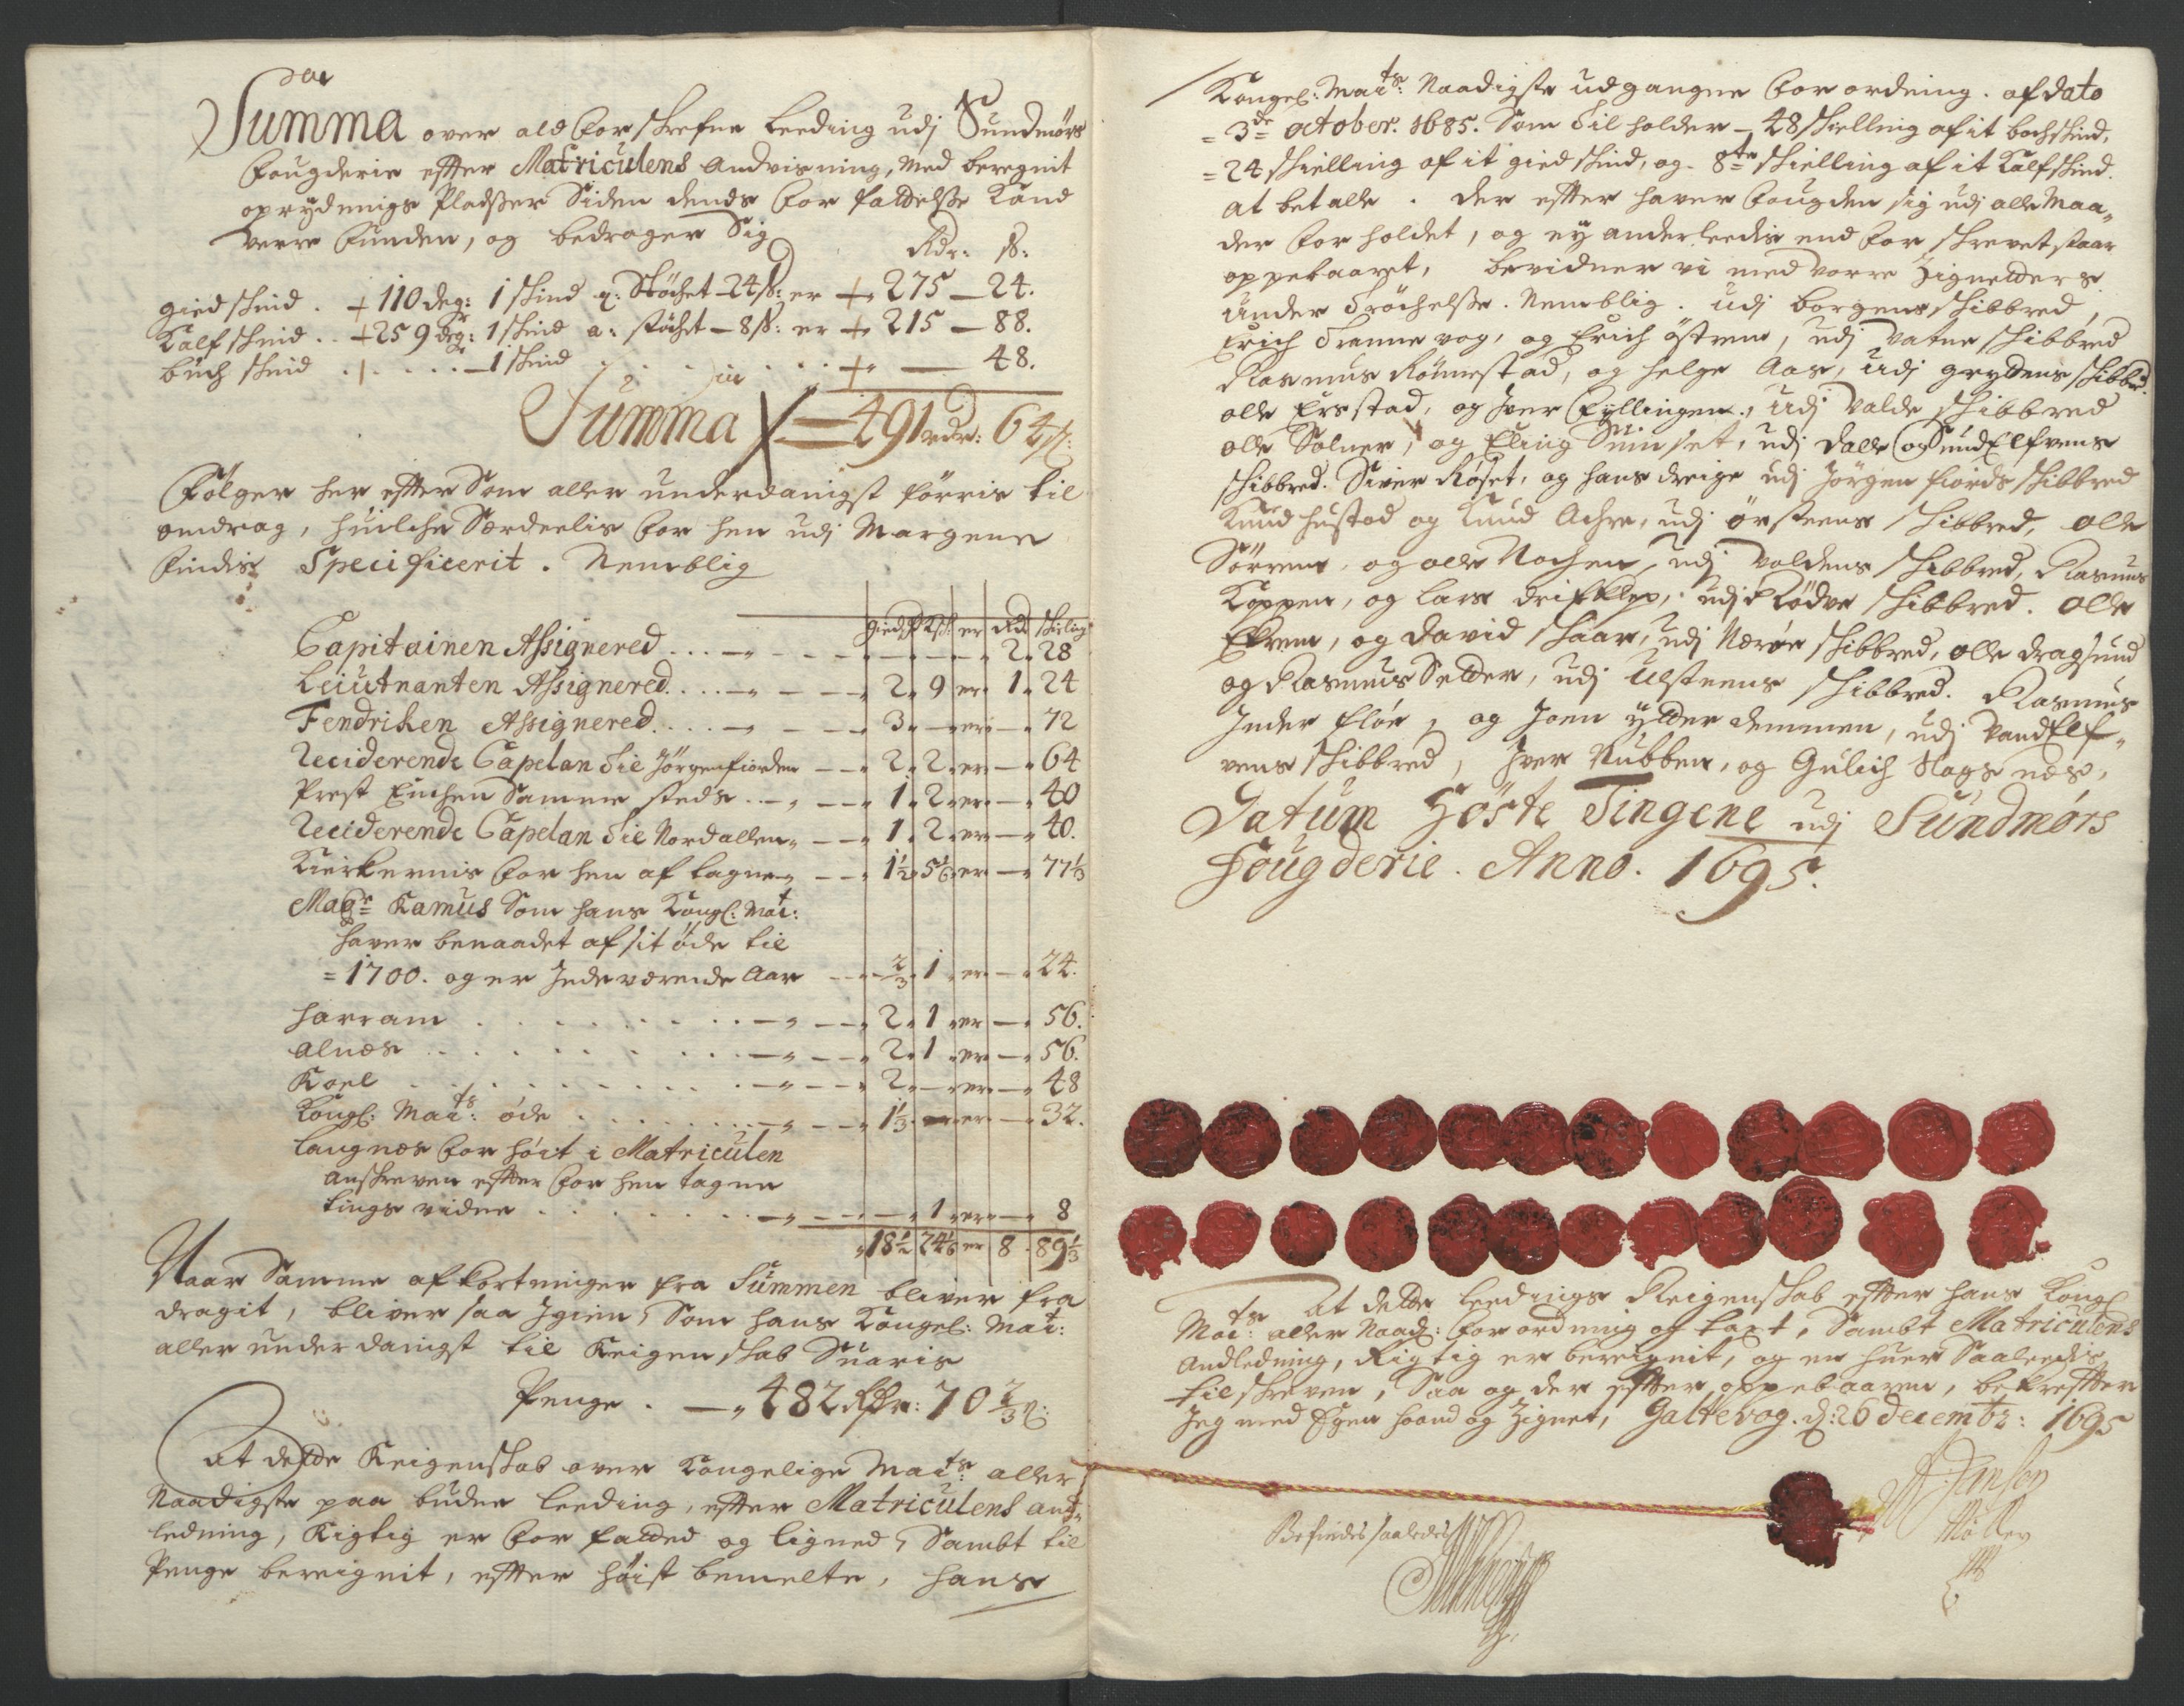 Summa over alt forskrefne Leeding udj Sundmørs
fougderie efter Matriculens andvisning, med beregnit
oprydnings Pladser Siden dends forfattelse Kand
verre funden, og bedrager Sig
Rdr: ß:
giedskind . 110 deg: 1 skind a: Støchet 24 ß: er 275 — 24.
Kalfskind . . 259 deg: 1 skind a: støchet — 8 ß: er 215 — 88.
buchskind . . . . — 1 skind . . . . . 48.
Summa 491 rdr: 64 ß:
Følger her efter Som aller underdanigst føris til
omdrag, huilche Særdeelis for hen udj Margene
findis Specificerit. Nemblig
giedsk Ksk: er Rdr skieling
Capitainen Assignered . . . — 2 „ 28
Leiutnanten Assignered . . . — 2 „ 9 er 1 „ 24
Fendriken Assignered . . . — 3 „ — er — 72
Reciderende Capelan til Jørgenfiorden — 2 „ 2 „ er — 64
Prest Enchen Samme steds . . — 1 „ 2 „ er — 40
Reciderende Capelan til Nordallen — 1 „ 2 „ er — 40.
Kierkernis for hen aflagne — 1½ 5⅙ er — 77⅓
Magr Ramus Som hans Kongl: Mait:
haver benaadet afsit øde til
= 1700. og er Indeværende Aar — ⅔ 1 er — 24.
Harram . . . . . — 2 „ 1 „ er — 56.
Alnes . . . . . — 2 „ 1 „ er — 56.
Roel . . . . . — 2 „ — er — 48
Kongl: Maits: øde . . . . . — 1⅓ — er — 32.
Langnes for høit i Matriculen
anskreven efter for hen tagne
tings vidne . . . . . — 1 „ er — 8
18½ 24⅙ er 8 „ 89⅓
Naar Samme afkortninger fra Summen bliver fra
dragit, bliver saa Igien, Som hans Kongel: Mait:
aller underdanigst til Reigenskab Suaris
Penge . — 482 Rdr: 70⅔ ß:
At dette Reigenskab over Kongelige Maits: aller
Naadigste paa budne Leeding, efter Matriculens and„
ledning, Rigtig er forfatted og ligned, Sambt til
Penge bereignit, efter høist bemelte, hans
Kongel: Maits: Naadigste udgangne forordning. af dato
= 3de october. 1685. Som til holder — 48 skielling af it bochskind,
= 24 skielling af it giedskind, og — 8te skielling af it Kalfskind.
at betalle . der efter haver fougden sig udj alle Maa„
der forholdet, og ey anderleedis end forskrevet staar
oppebaaret, bevidner vi med vorre Zignetters
under trøchelse. Nemblig. udj borgens skibbred,
Erich Trannevog, og Erich østrem, udj Vatne skibbred
Rasmus Rønnestad, og Helge Aas, udj grydens skibbrd:
olle Ersstad, og Iver fyllingen, udj Valde skibbred
olle Solner, og Eling Sunset, udj dalle og SundElfvens
skibbred. Siver Røset, og hans dreige udj Jørgenfiords skibbred
Knud hustad og Knud Achre, udj ørsteens skibbred, olle
Sørrem, og olle Nochen, udj Voldens skibbred, Rasmus
Koppen, og Lars drifklep, udj Rødve skibbred. olle
Ekrem, og david skaar, udj Nærøe skibbred, olle dragsund
og Rasmus Selder, udj Ulsteens skibbred. Rasmus
Inder fløe, og Joen ytterdemmen, udj VandElf„
vens skibbred, Iver Nubben, og Gulich Slogsnes,
Datum Høste Tingene udj Sundmørs
Fougderie. Anno. 1695.
At dette Leedings Reigenskab efter hans Kongl
Maits: aller Naad: forordning og taxt, Sambt Matriculens
andledning, Rigtig er bereignit, og en huer Saaleedis
tilskreven, Saa og der efter oppebaaren, bekrefter
Jeg med Egen haand og Zignet, Galtevog. d: 26 decembr: 1695
Jensen
Møller
Befindes saaledes